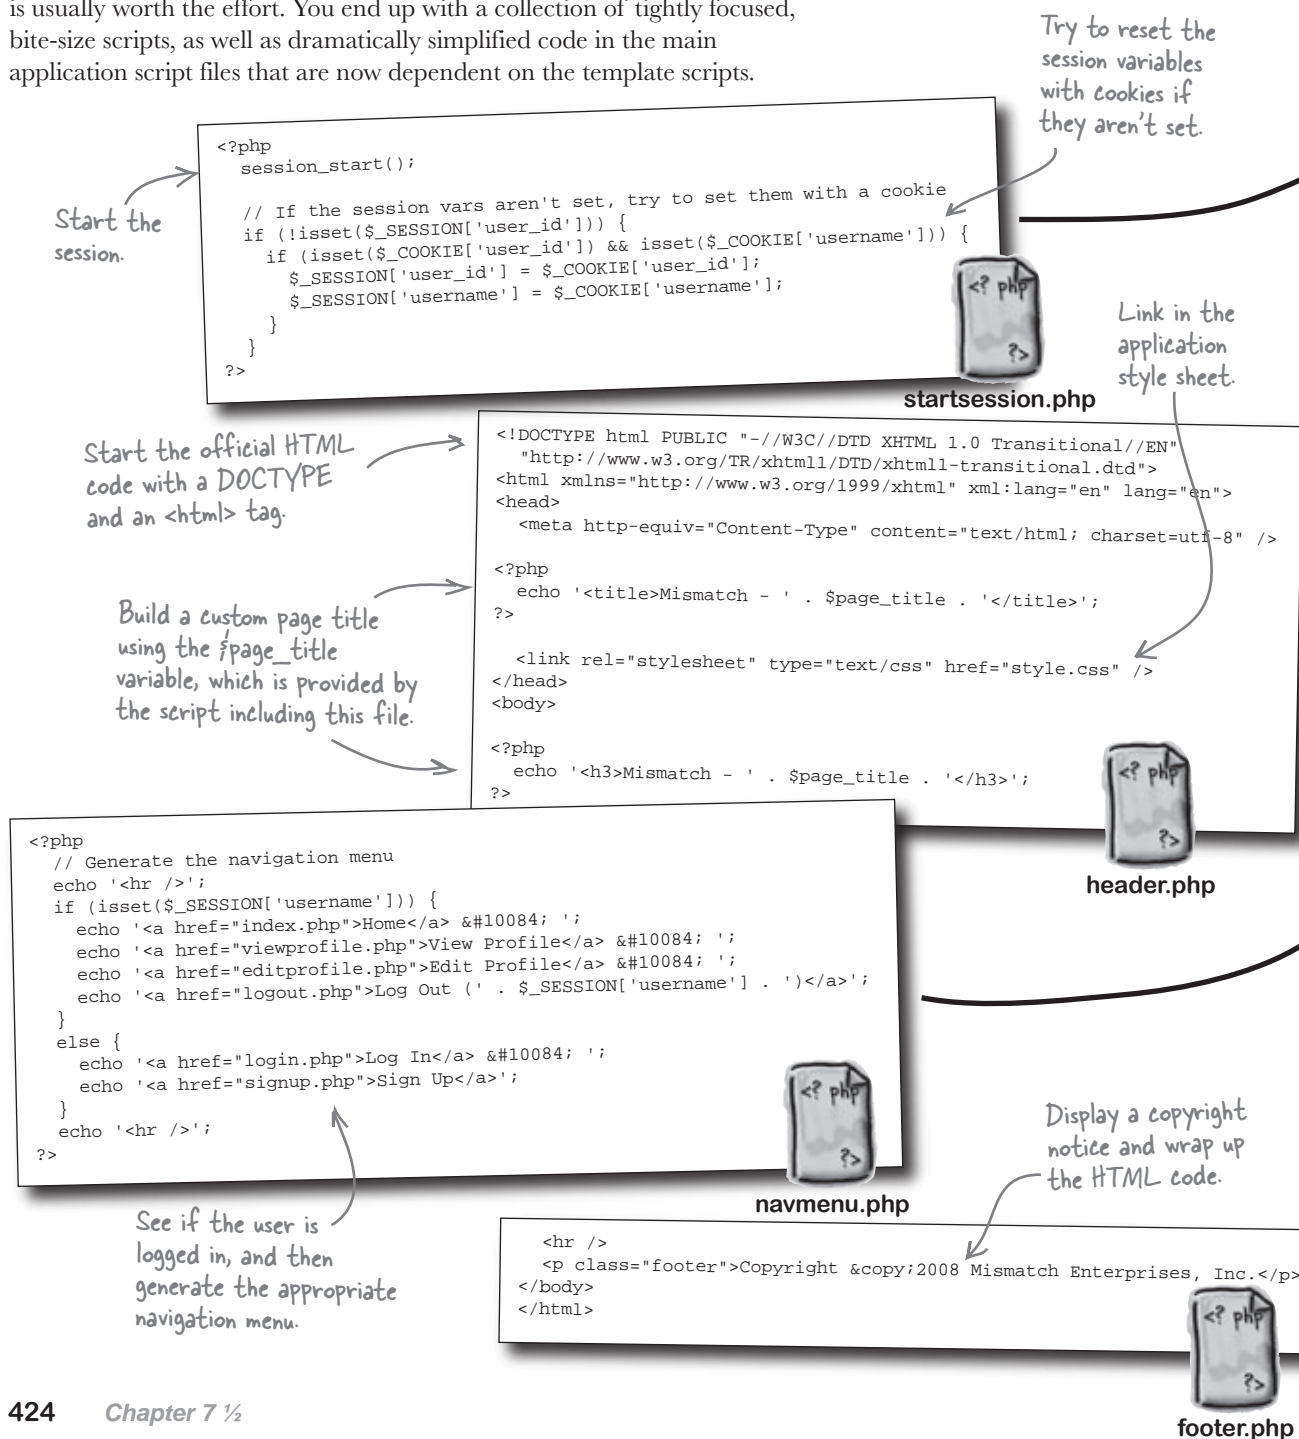 is usually worth the effort. You end up with a collection of tightly focused,
bite-size scripts, as well as dramatically simplified code in the main
application script files that are now dependent on the template scripts.
Try to reset the
session variables
with cookies if
they aren't set.
Start the
session.
<?php
session_start();
// If the session vars aren't set, try to set them with a cookie
if (!isset($_SESSION['user_id'])) {
if (isset($_COOKIE['user_id']) && isset($_COOKIE['username'])) {
$_SESSION['user_id'] = $_COOKIE['user_id'];
$_SESSION['username'] = $_COOKIE['username'];
}
}
?>
<? php
?>
startsession.php
Link in the
application
style sheet.
Start the official HTML
code with a DOCTYPE
and an <html> tag.
<!DOCTYPE html PUBLIC "-//W3C//DTD XHTML 1.0 Transitional//EN"
"http://www.w3.org/TR/xhtml1/DTD/xhtml1-transitional.dtd">
<html xmlns="http://www.w3.org/1999/xhtml" xml:lang="en" lang="en">
<head>
<meta http-equiv="Content-Type" content="text/html; charset=utf-8" />
<?php
echo '<title>Mismatch - ' . $page_title . '</title>';
?>
<link rel="stylesheet" type="text/css" href="style.css" />
</head>
<body>
<?php
echo '<h3>Mismatch - ' . $page_title . '</h3>';
?>
Build a custom page title
using the $page_title
variable, which is provided by
the script including this file.
<? php
?>
header.php
<?php
// Generate the navigation menu
echo '<hr />';
if (isset($_SESSION['username'])) {
echo '<a href="index.php">Home</a> &#10084; ';
echo '<a href="viewprofile.php">View Profile</a> &#10084; ';
echo '<a href="editprofile.php">Edit Profile</a> &#10084; ';
echo '<a href="logout.php">Log Out (' . $_SESSION['username'] . ')</a>';
}
else {
echo '<a href="login.php">Log In</a> &#10084; ';
echo '<a href="signup.php">Sign Up</a>';
}
echo '<hr />';
?>
<? php
?>
navmenu.php
See if the user is
logged in, and then
generate the appropriate
navigation menu.
Display a copyright
notice and wrap up
the HTML code.
<hr />
<p class="footer">Copyright &copy;2008 Mismatch Enterprises, Inc.</p>
</body>
</html>
<? php
?>
footer.php
424 Chapter 7 ½